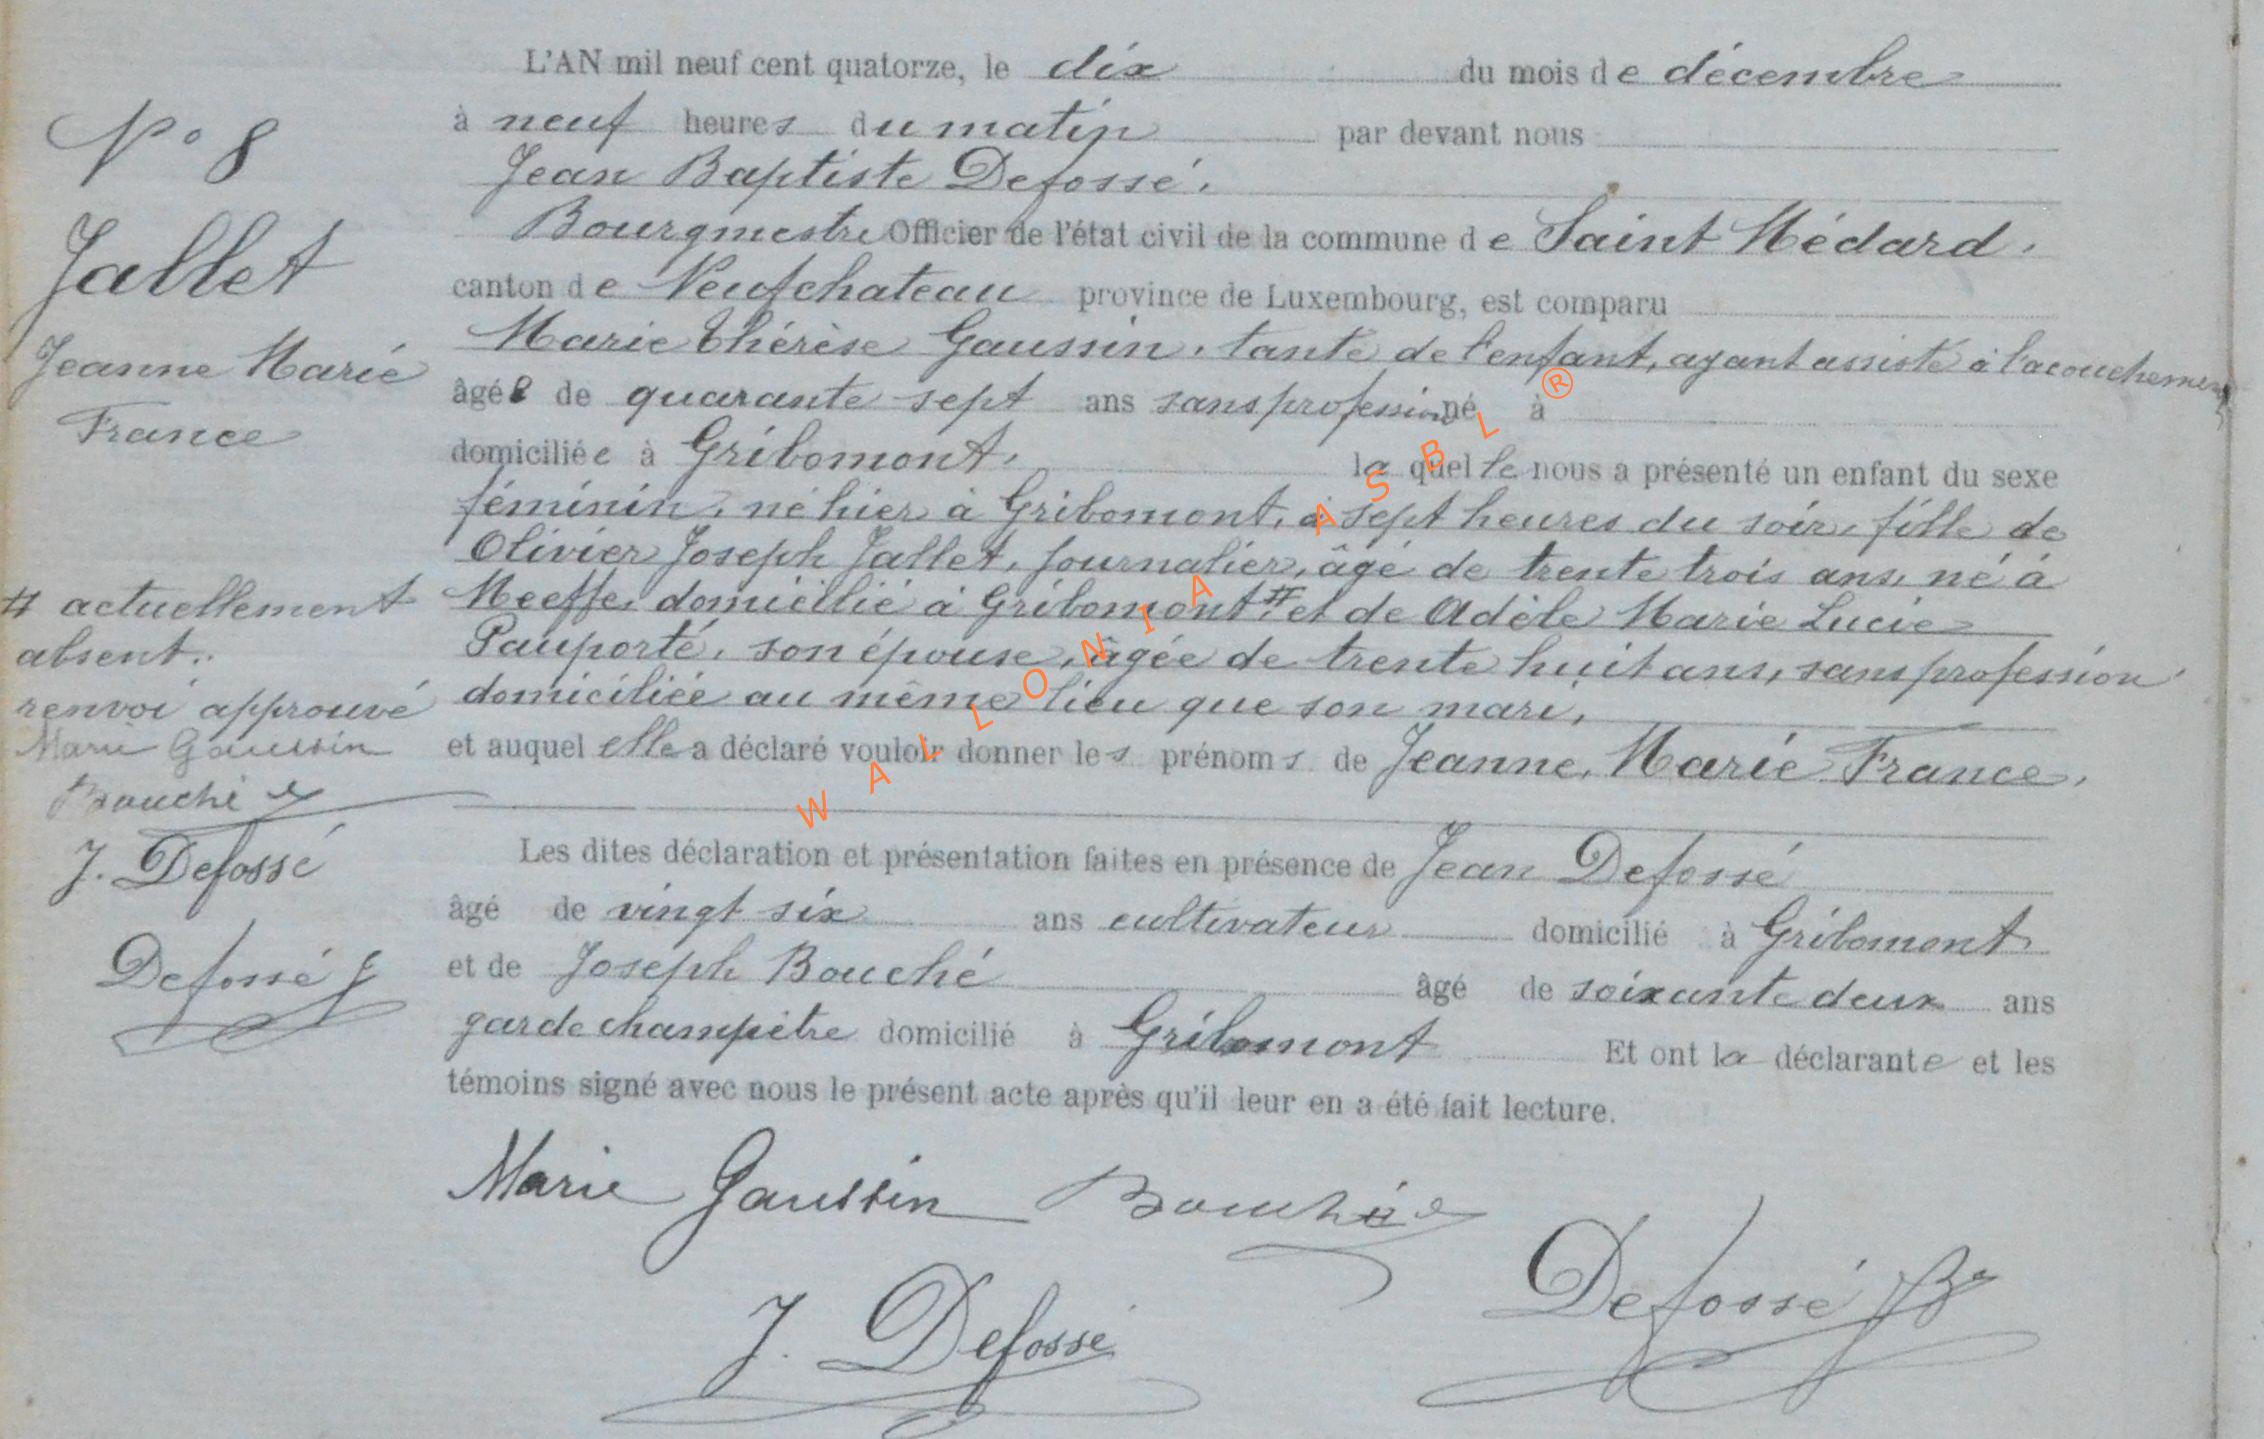 N° 8
Jallet
Jeanne Marie
France
# actuellement
absent.
renvoi approuvé
Marie Gaussin
Bouché
J. Defossé
Defossé J
L'AN mil neuf cent quatorze, le dix du mois de décembre
à neuf heures du matin par devant nous
Jean Baptiste Defossé.
Bourgmestre Officier de l'état civil de la commune de Saint Médard.
canton de Neufchateau province de Luxembourg, est comparu
Marie thérèse Gaussin, tante de l'enfant, ayant assisté à l'acouchement
âgée de quarante sept ans sans profession né à
domiciliée à Gribomont, laquelle nous a présenté un enfant du sexe
féminin, né hier à Gribomont, à sept heures du soir, fille de
Olivier Joseph Jallet, journalier, âgé de trente trois ans, né à
Meeffe, domicilié à Gribomont # et de Adèle Marie Lucie
Pauporté, son épouse, âgée de trente huit ans, sans profession
domiciliée au même lieu que son mari,
et auquel elle a déclaré vouloir donner les prénoms de Jeanne, Marie France.
Les dites déclaration et présentation faites en présence de Jean Defossé
âgé de vingt six ans cultivateur domicilié à Gribomont
et de Joseph Bouché âgé de soixante deux ans
garde champêtre domicilié à Gribomont Et ont la déclarante et les
témoins signé avec nous le présent acte après qu'il leur en a été fait lecture.
Marie Gaussin Bouché
J. Defossé Defossé JB
WALLONIA ASBL ®